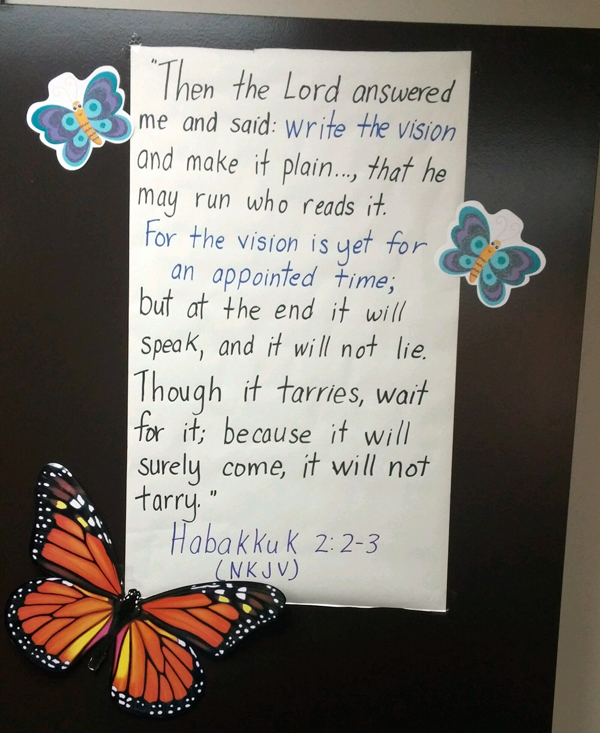 "Then the Lord answered
me and said: write the vision
and make it plain..., that he
may run who reads it.
For the vision is yet for
an appointed time;
but at the end it will
speak, and it will not lie.
Though it tarries, wait
for it; because it will
surely come, it will not
tarry."
Habakkuk 2:2-3
(NKJV)